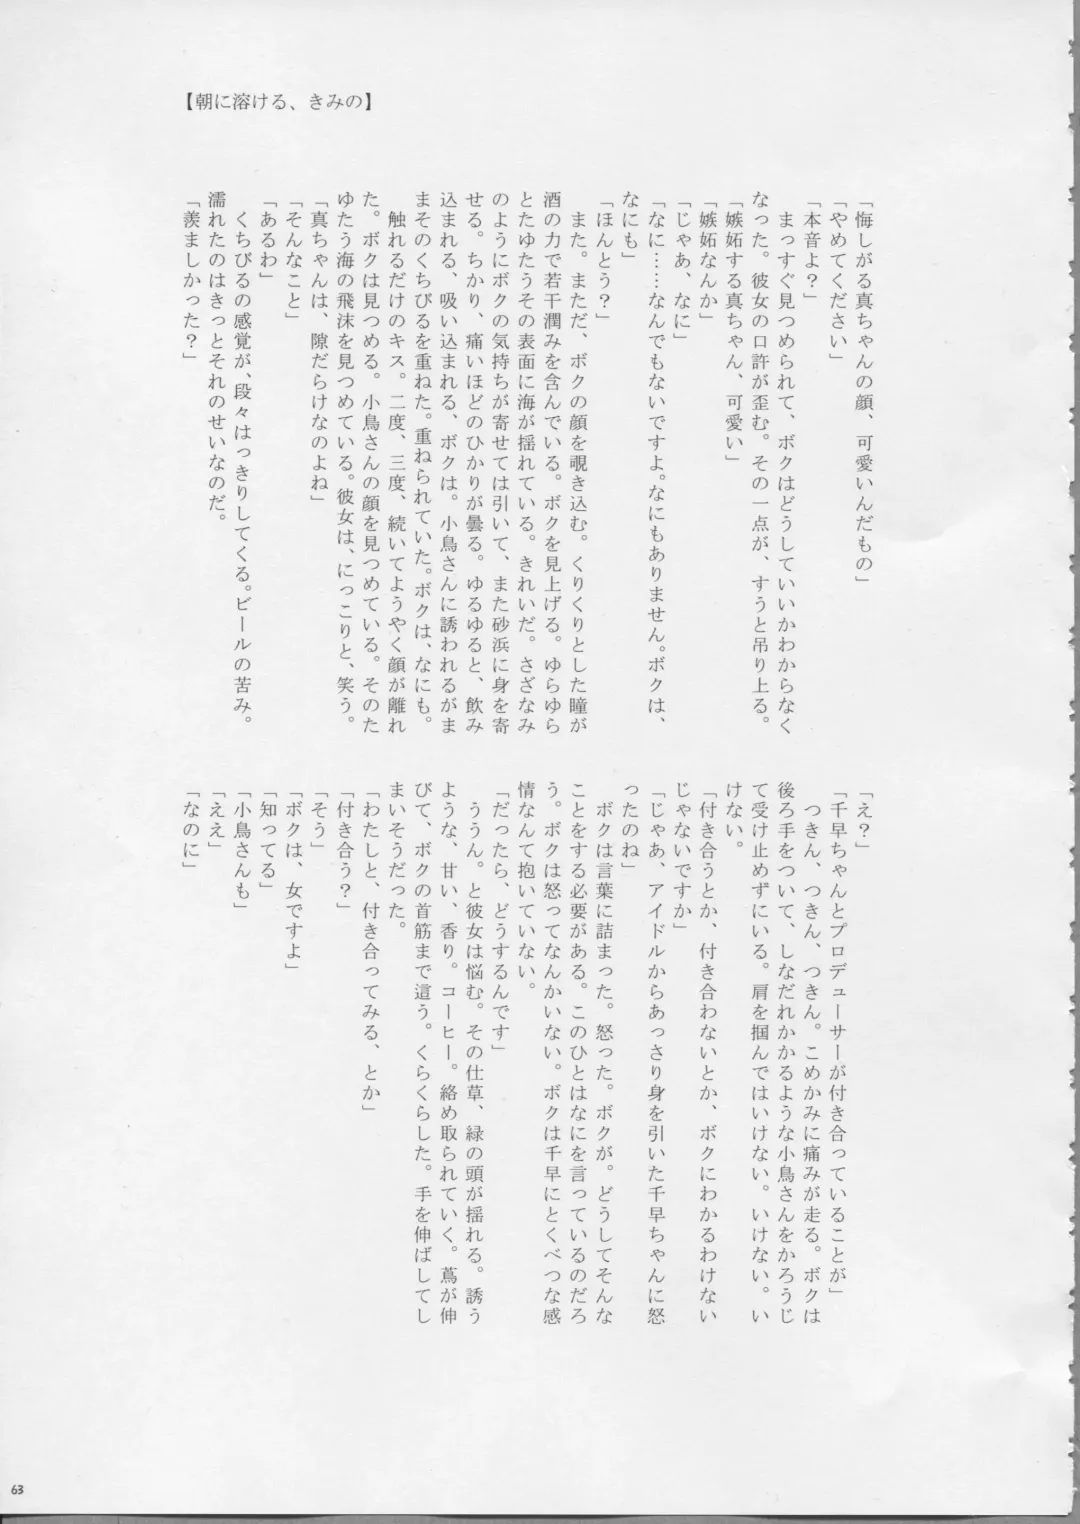 【朝に溶ける、きみの】
「悔しがる真ちゃんの顔、可愛いんだもの」
「やめてください」
「本音よ？」
　まっすぐ見つめられて、ボクはどうしていいかわからなく
なった。彼女の口許が歪む。その一点が、すうと吊り上る。
「嫉妬する真ちゃん、可愛い」
「嫉妬なんか」
「じゃあ、なに」
「なに……なんでもないですよ。なにもありません。ボクは、
なにも」
「ほんとう？」
　また。まただ、ボクの顔を覗き込む。くりくりとした瞳が
酒の力で若干潤みを含んでいる。ボクを見上げる。ゆらゆら
とたゆたうその表面に海が揺れている。きれいだ。さざなみ
のようにボクの気持ちが寄せては引いて、また砂浜に身を寄
せる。ちかり、痛いほどのひかりが曇る。ゆるゆると、飲み
込まれる、吸い込まれる、ボクは。小鳥さんに誘われるがま
まそのくちびるを重ねた。重ねられていた。ボクは、なにも。
　触れるだけのキス。二度、三度、続いてようやく顔が離れ
た。ボクは見つめる。小鳥さんの顔を見つめている。そのた
ゆたう海の飛沫を見つめている。彼女は、にっこりと、笑う。
「真ちゃんは、隙だらけなのよね」
「そんなこと」
「あるわ」
　くちびるの感覚が、段々はっきりしてくる。ビールの苦み。
濡れたのはきっとそれのせいなのだ。
「羨ましかった？」
「え？」
「千早ちゃんとプロデューサーが付き合っていることが」
　つきん、つきん、つきん。こめかみに痛みが走る。ボクは
後ろ手をついて、しなだれかかるような小鳥さんをかろうじ
て受け止めずにいる。肩を掴んではいけない。いけない。い
けない。
「付き合うとか、付き合わないとか、ボクにわかるわけない
じゃないですか」
「じゃあ、アイドルからあっさり身を引いた千早ちゃんに怒
ったのね」
　ボクは言葉に詰まった。怒った。ボクが。どうしてそんな
ことをする必要がある。このひとはなにを言っているのだろ
う。ボクは怒ってなんかいない。ボクは千早にとくべつな感
情なんて抱いていない。
「だったら、どうするんです」
　ううん。と彼女は悩む。その仕草、緑の頭が揺れる。誘う
ような、甘い、香り。コーヒー。絡め取られていく。蔦が伸
びて、ボクの首筋まで這う。くらくらした。手を伸ばしてし
まいそうだった。
「わたしと、付き合ってみる、とか」
「付き合う？」
「そう」
「ボクは、女ですよ」
「知ってる」
「小鳥さんも」
「ええ」
「なのに」
63